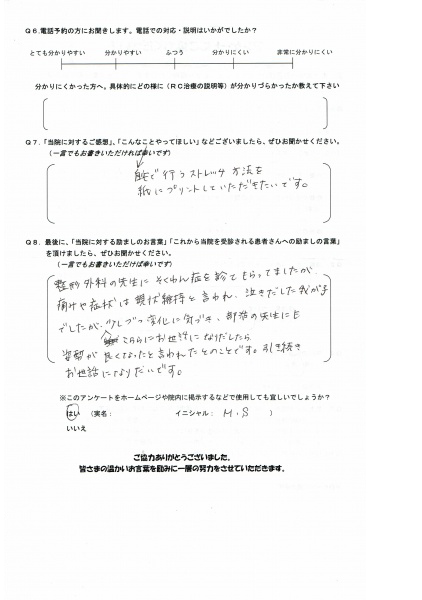 Q6.電話予約の方にお聞きします。電話での対応・説明はいかがでしたか？
とても分かりやすい 分かりやすい ふつう 分かりにくい 非常に分かりにくい
分かりにくかった方へ。具体的にどの様に（RC治療の説明等）が分かりづらかったか教えて下さい
Q7.「当院に対するご感想」、「こんなことやってほしい」などございましたら、ぜひお聞かせください。
（一言でもお書きいただければ幸いです）
で行うストレッチ方法を
紙にプリントしていただきたいです。
Q8. 最後に、「当院に対する励ましのお言葉」「これから当院を受診される患者さんへの励ましの言葉」
を頂けましたら、ぜひお聞かせください。
（一言でもお書きいただけば幸いです）
整形外科の先生にそくわん症を診てもらってましたが、
痛みや症状は現状維持と言われ、泣きだした我が子
でしたが、少しづつ変化に気づき、部活の先生にも
こちらにお世話になりだしたら
姿勢が良くなったと言われたとのことです。引き続き
お世話になりたいです。
※このアンケートをホームページや院内に掲示するなどで使用しても宜しいでしょうか？
はい （実名： イニシャル： M.S ）
いいえ
ご協力ありがとうございました。
皆さまの温かいお言葉を励みに一層の努力をさせていただきます。